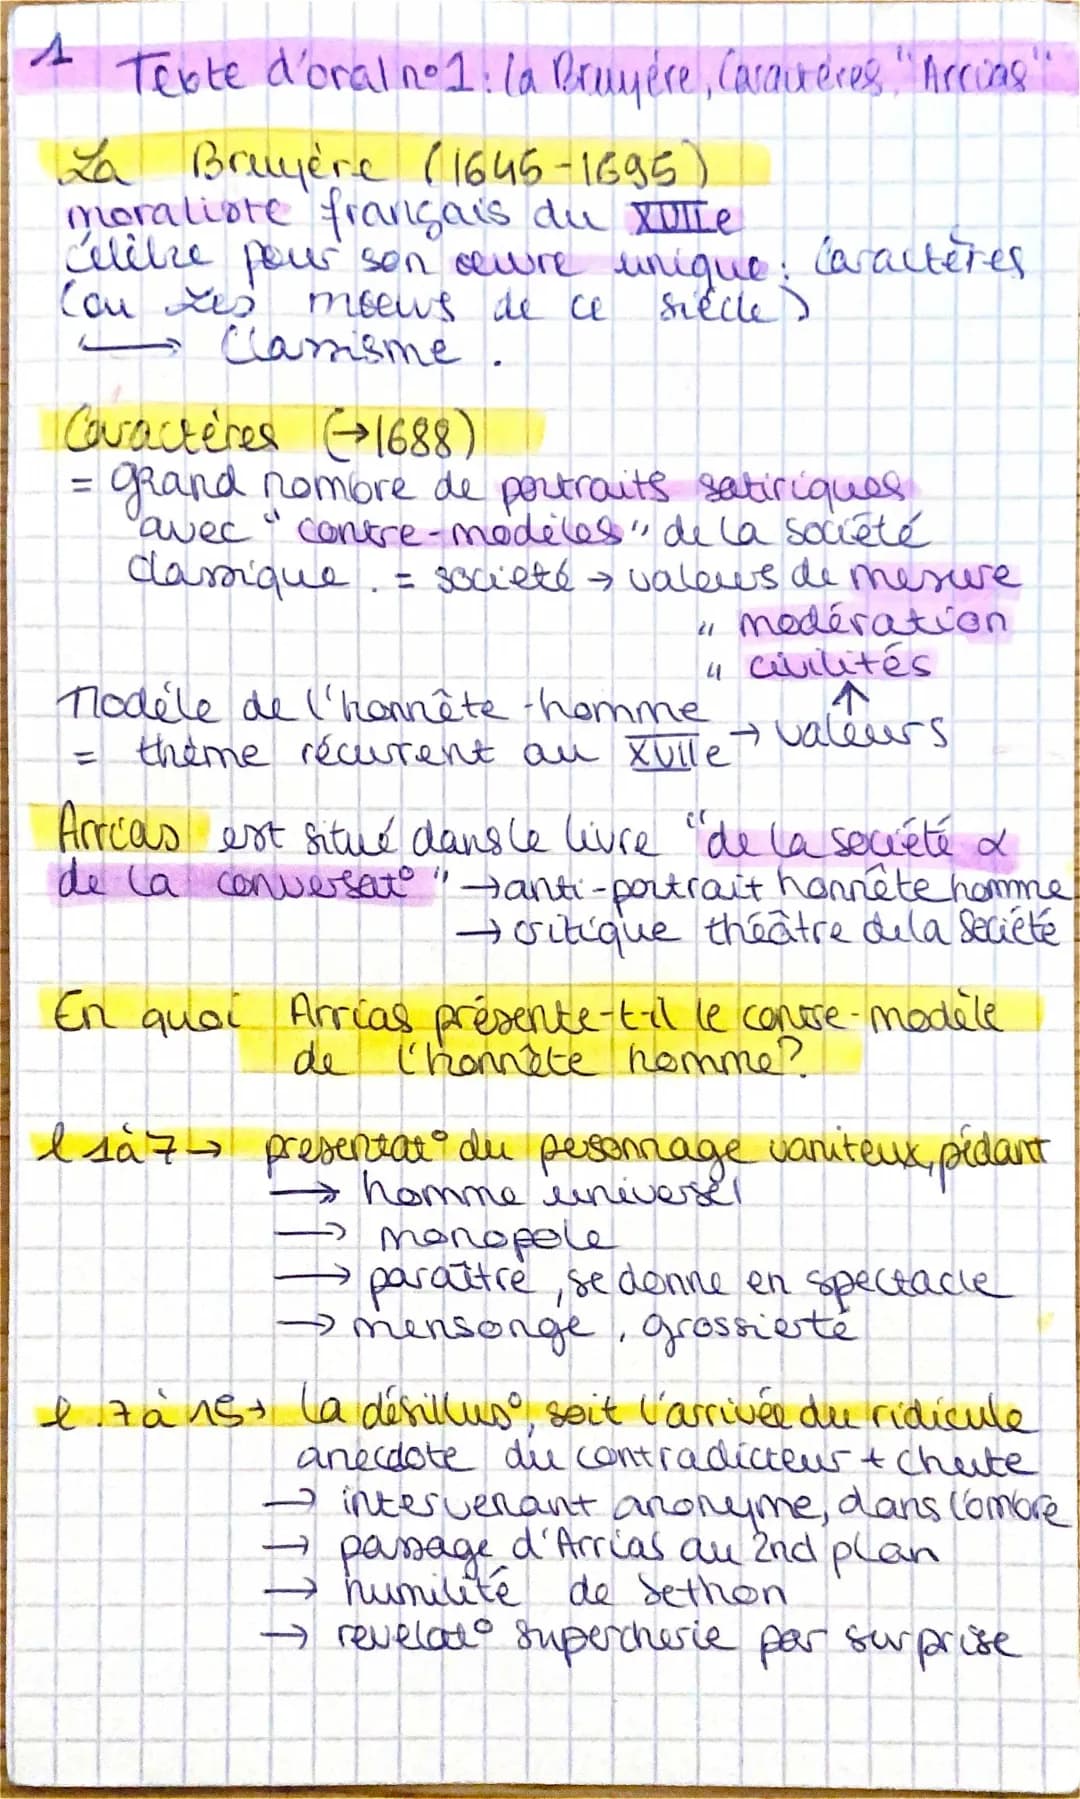 1
Texte d'oral n°1: La Bruyère, Caractères "Arrias"
La Bruyère (1645-1695)
moraliste français du XVIIe
Célèbre pour son œuvre unique: Caractères
(ou Les mœurs de ce siècle)
→ Classisme.
Caractères (→1688)
= grand nombre de portraits satiriques
avec "contre-modèles" de la société
classique. = société → valeurs de mesure
" modération
" civilités
Modèle de l'honnête-homme ↑
= thème récurrent au XVIIe → valeurs
Arrias est situé dans le livre "de la société &
de la conversat°" → anti-portrait honnête homme
→ critique théâtre de la Société
En quoi Arrias présente-t-il le contre-modèle
de l'honnête homme?
l 1 à 7 → présentat° du personnage vaniteux, pédant
→ homme universel
→ monopole
→ paraître, se donne en spectacle
→ mensonge, grossierté
l.7 à 15→ la désillus°, soit l'arrivée du ridicule
anecdote du contradicteur + chute
→ intervenant anonyme, dans l'ombre
→ passage d'Arrias au 2nd plan
→ humilité de Sethon
→ révélat° supercherie par surprise